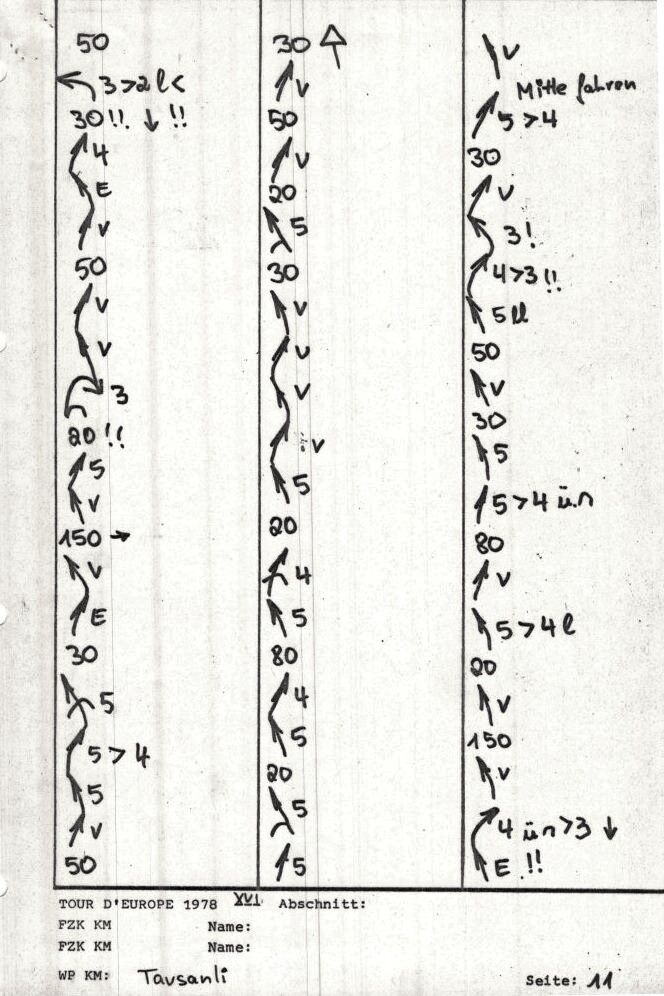 50
3 > 2 l <
30 !! ↓ !!
4
E
V
50
V
V
3
20 !!
5
V
150 →
V
E
30
5
5 > 4
5
V
50
30
V
50
V
20
5
30
V
V
V
V
5
20
4
5
80
4
5
20
5
5
V
Mitte fahren
5 > 4
30
V
3!
4 > 3 !!
5 ll
50
V
30
5
5 > 4 ü.n
80
V
5 > 4 l
20
V
150
V
4 ün > 3 ↓
E !!
TOUR D'EUROPE 1978 XVI Abschnitt:
FZK KM Name:
FZK KM Name:
WP KM: Tavsanli Seite: 11